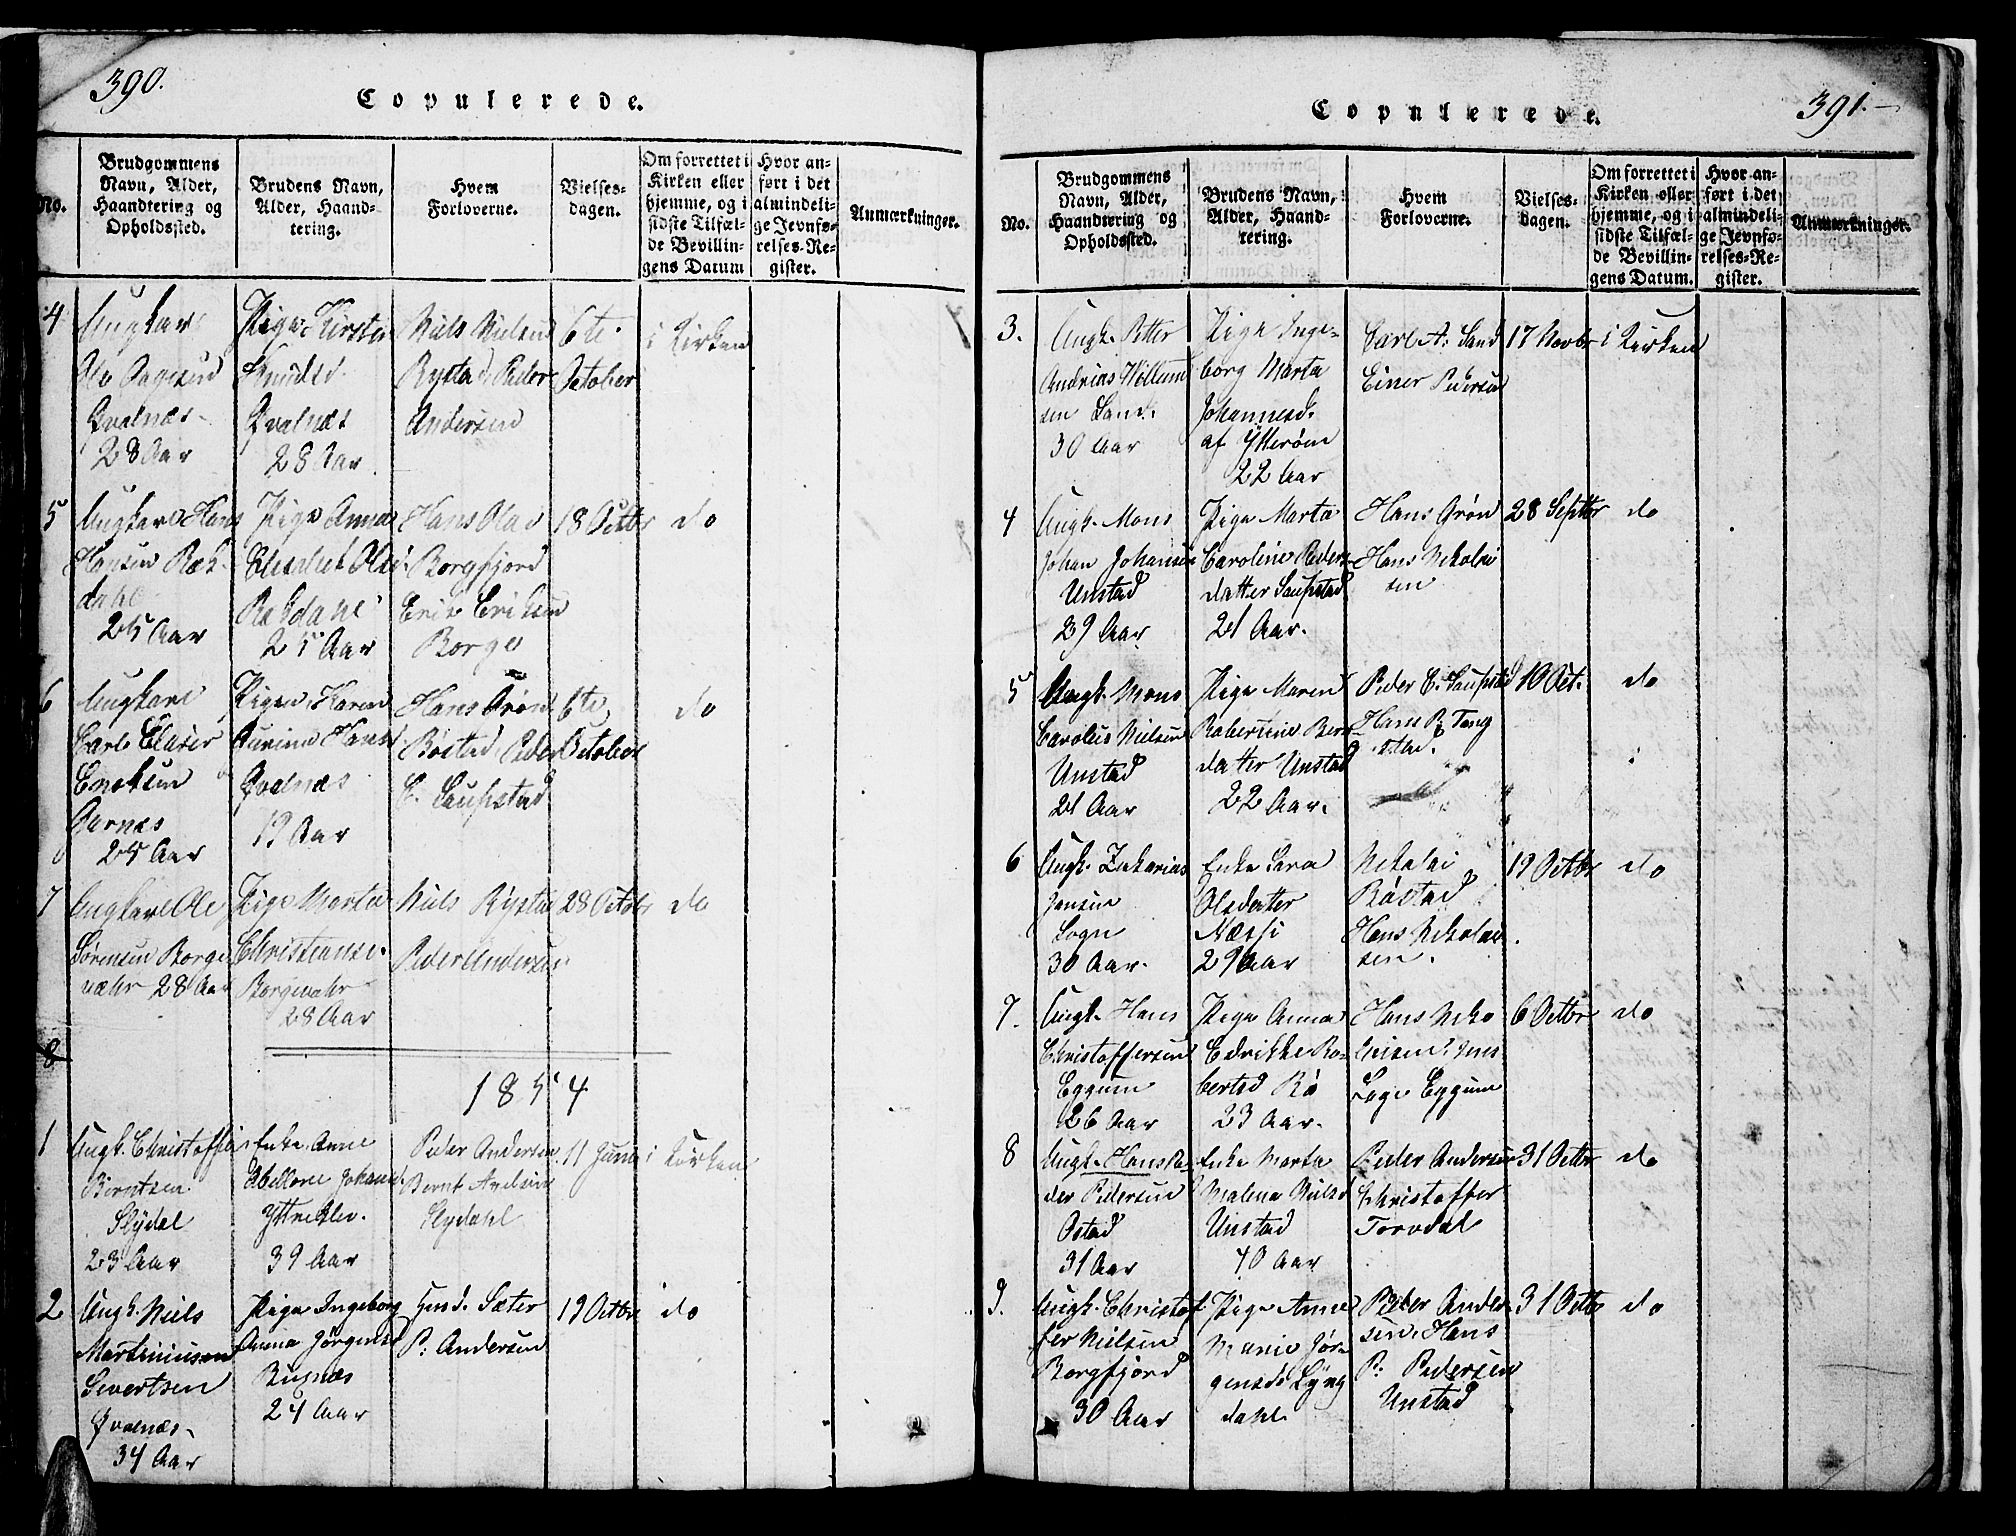 390.
Copulerede.
No.
Brudgommens
Navn, Alder,
Haandtering og
Opholdssted.
Brudens Navn,
Alder, Haand-
tering.
Hvem
Forloverne.
Vielses-
dagen.
Om forrettet i
Kirken eller
hjemme, og i
sidste Tilfæl-
de Bevillin-
gens Datum
Hvor an-
ført i det
almindeli-
ge Jevnfø-
relses-Re-
gister.
Anmærkninger.
4
Ungkarl
Qvalnæs
28 Aar
Pige Kirsten
Knudsd.
Qvalnæs
28 Aar
Niels Nielsen
Rystad, Peder
Andersen
6te
October
i Kirken
5
Ungkarl Hans
Hansen Bæk-
dahl
25 Aar
Pige Anna
Elisabet Olsd.
Bækdahl
25 Aar
Hans Olai
Borgfjord
Eric Eriksen
Borge
18 Octbr
do
6
Ungkarl
Carl Elaser
Enoksen
25 Aar
Pigen Karen
Hansd.
Qvalnæs
19 Aar
Hans Grøn
Bøstad, Peder
E. Saupstad
6te
October
do
7
Ungkarl Ole
Sørensen Borge
vær 28 Aar
Pige Marta
Christiansd.
Borgevær
28 Aar
Niels Rystad
Peder Andersen
28 Octobr
do
8
1854
1
Ungk. Christoffer
Berntsen
Slydal
23 Aar
Enke Anne
Abellone Johansd.
39 Aar
Peder Andersen
Bernt Axelsen
Slydahl
11 Juni
i Kirken
2
Ungk. Niels
Martiniusen
Sivertsen
Qvalnæs
34 Aar
Pige Ingeborg
Anna Jørgensd.
24 Aar
Hend. Sæter
P: Andersen
19 Octbr
do
391.
Copulerede.
No.
Brudgommens
Navn, Alder,
Haandtering og
Opholdssted.
Brudens Navn,
Alder, Haand-
tering.
Hvem
Forloverne.
Vielses-
dagen.
Om forrettet i
Kirken eller
hjemme, og i
sidste Tilfæl-
de Bevillin-
gens Datum.
Hvor an-
ført i det
almindeli-
ge Jevnfø-
relses-Re-
gister.
Anmærkninger.
3.
Ungk. Petter
Andrias
sen Sand.
30 Aar
Pige Inge-
borg Marta
Johannesd.
af Ytterøen
22 Aar
Carl A: Sand
Einer Pedersen
17 Novbr
i Kirken
4
Ungk. Mons
Johan Johansen
Unstad
29 Aar
Pige Marta
Caroline Peders-
datter Saupstad
21 Aar.
Hans Grøn
Hans Nikolai
sen
28 Septbr
do
5
Ungk. Mons
Carolius Nielsen
Unstad
21 Aar
Pige Maren
Robertine Bern-
datter Unstad
22 Aar.
Peder E. Saupstad
Hans B Tang
stad.
10 Oct.
do
6
Ungk. Zakarias
Jensen
Sogn
30 Aar.
Enke Sara
Olsdatter
Næsje
29 Aar
Nikolai
Bøstad
Hans Nikolai
sen.
19 Octbr
do
7.
Ungk. Hans
Christoffersen
Eggum
26 Aar
Pige Anna
Edrikke Ro-
bertsd Bø
23 Aar.
Hans Niko
laisen, Jens
Lage Eggum
6 Octbr
do
8
Ungk. Hans Pe
der Pedersen
Ostad
31 Aar
Enke Marta
Malena Nielsd
Unstad
40 Aar
Peder Andersen
Christoffer
Torvdal
31 Octbr
do
9.
Ungk. Christof-
fer Nielsen
Borgfjord
30 Aar
Pige Anne
Marie Jør-
gensd. Lyng
dahl
Peder Ander
sen, Hans
P: Pedersen
Unstad
31 Octbr
do